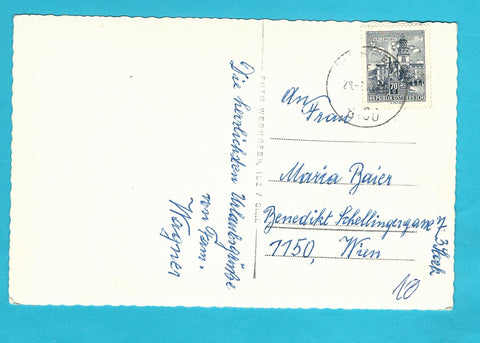 Die herzlichsten Urlaubsgrüße
von Fam.
Wagner
FOTO WEGHOFER, ILZ /
REPUBLIK ÖSTERREICH
70
28.
An
Frau
Maria Baier
Benedikt Schellingergasse 7. 3. Stock
1150, Wien
10